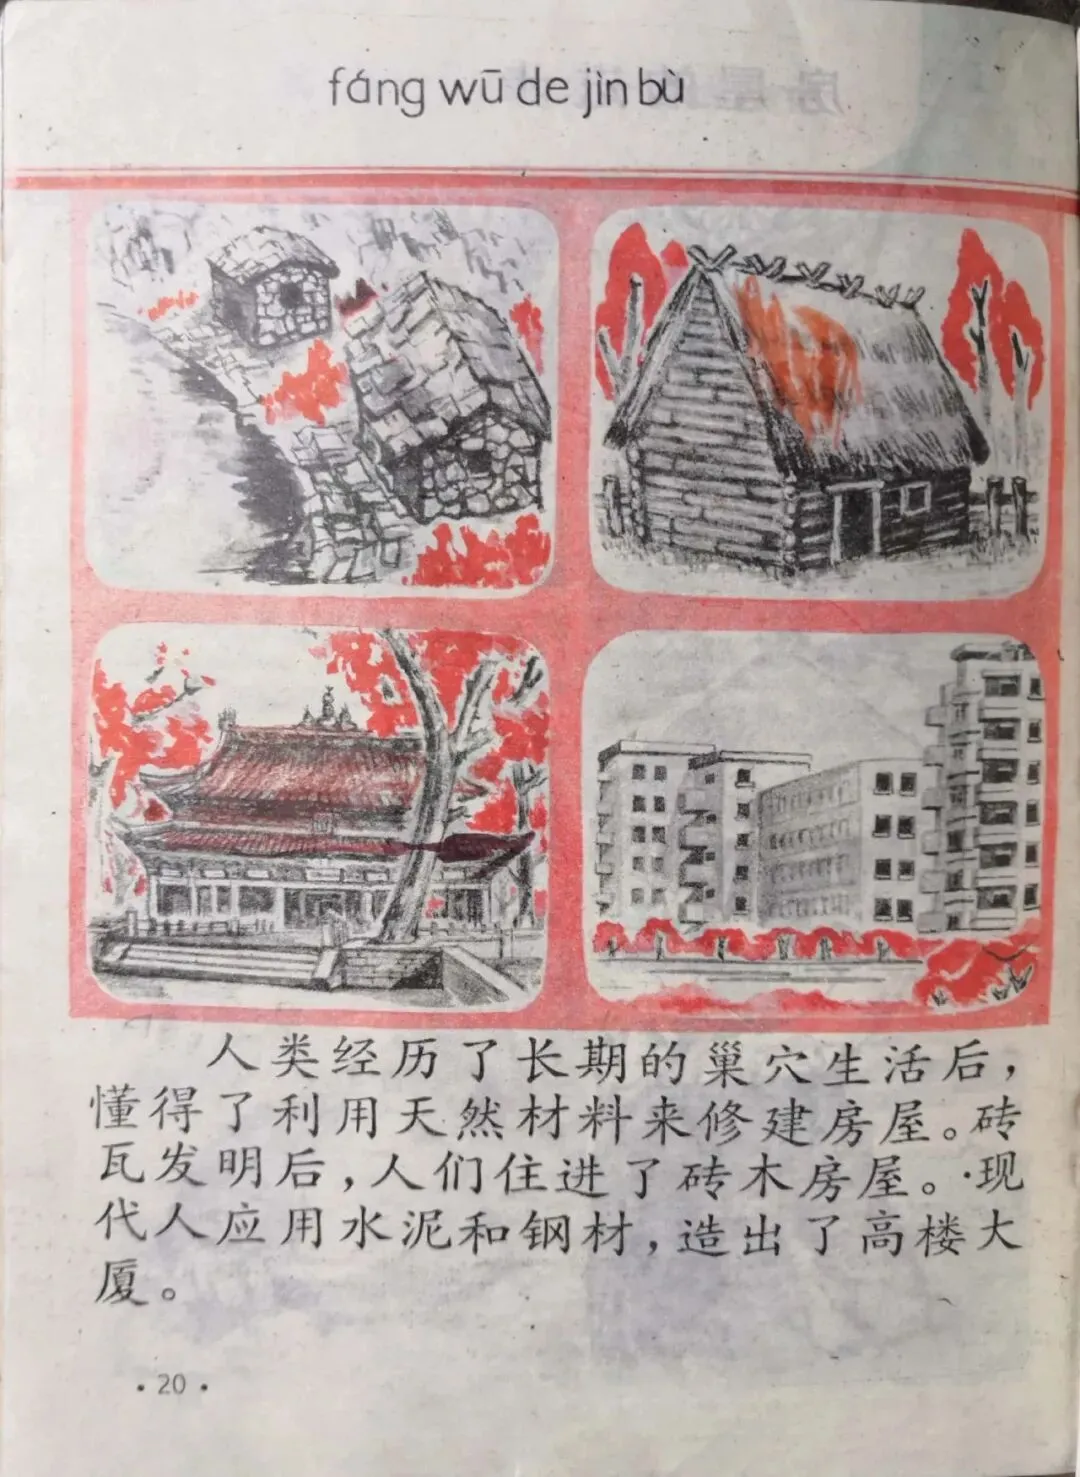 fáng wū de jìn bù
人类经历了长期的巢穴生活后，
懂得了利用天然材料来修建房屋。砖
瓦发明后，人们住进了砖木房屋。·现
代人应用水泥和钢材，造出了高楼大
厦。
·20·